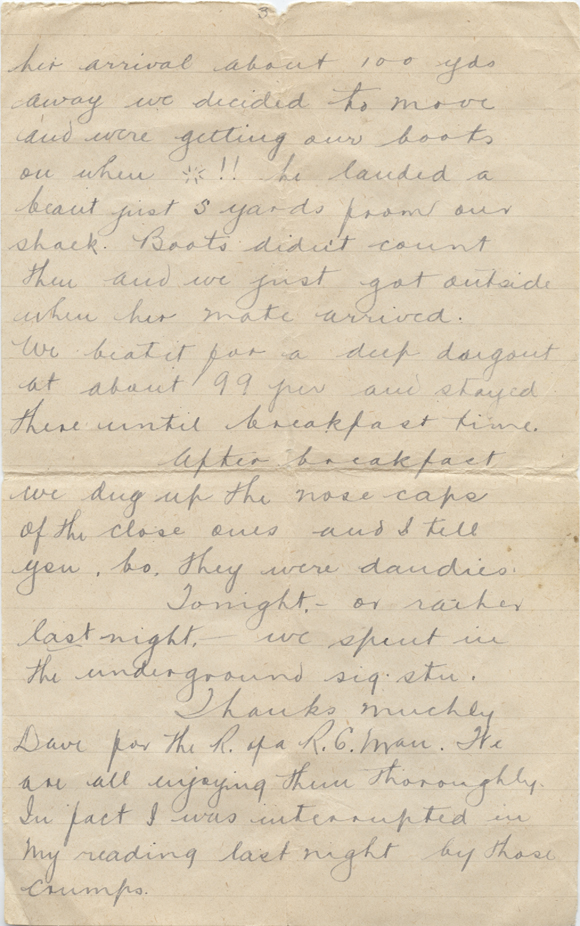 3
her arrival about 100 yds
away we decided to move
and were getting our boots
on when !! he landed a
beaut just 5 yards from our
shack. Boots didn't count
then and we just got outside
when her mate arrived.
We beat it for a deep dougout
at about 99 per and stayed
there until breakfast time.
After breakfast
we dug up the nose caps
of the close ones and I tell
you, bo, they were dandies.
Tonight, – or rather
last night, – we spent in
the underground sig. stn.
Thanks muchly
Dave for the R. of a R. C. Man. We
are all enjoying them thoroughly.
In fact I was interrupted in
my reading last night by those
crumps.